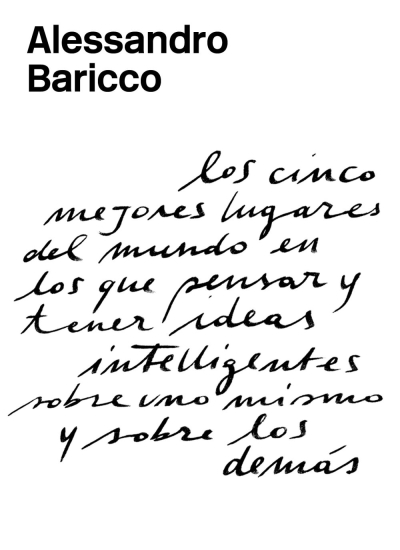 Alessandro
Baricco
los cinco
mejores lugares
del mundo en
los que pensar y
tener ideas
intelligentes
sobre uno mismo
y sobre los
demás